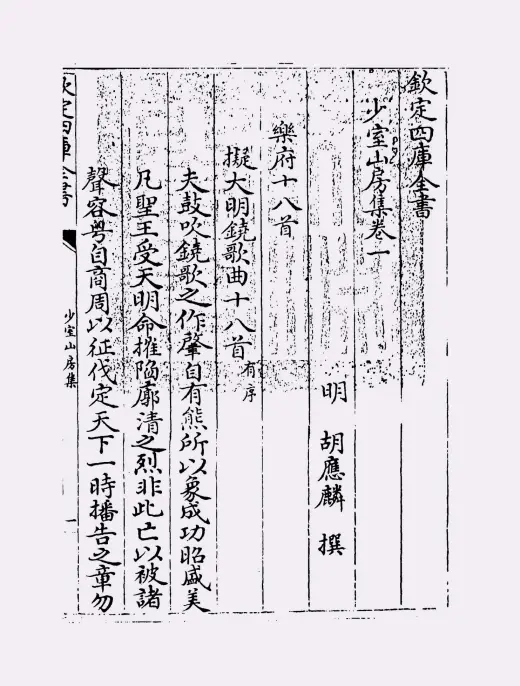 欽定四庫全書
少室山房集卷一
明 胡應麟 撰
樂府十八首
擬大明鐃歌曲十八首有序
夫鼓吹鐃歌之作肇自有熊所以象成功昭盛美
凡聖王受天明命摧陷廓清之烈非此亡以被諸
聲容粤自商周以征伐定天下一時播告之章勿
欽定四庫全書
少室山房集
一